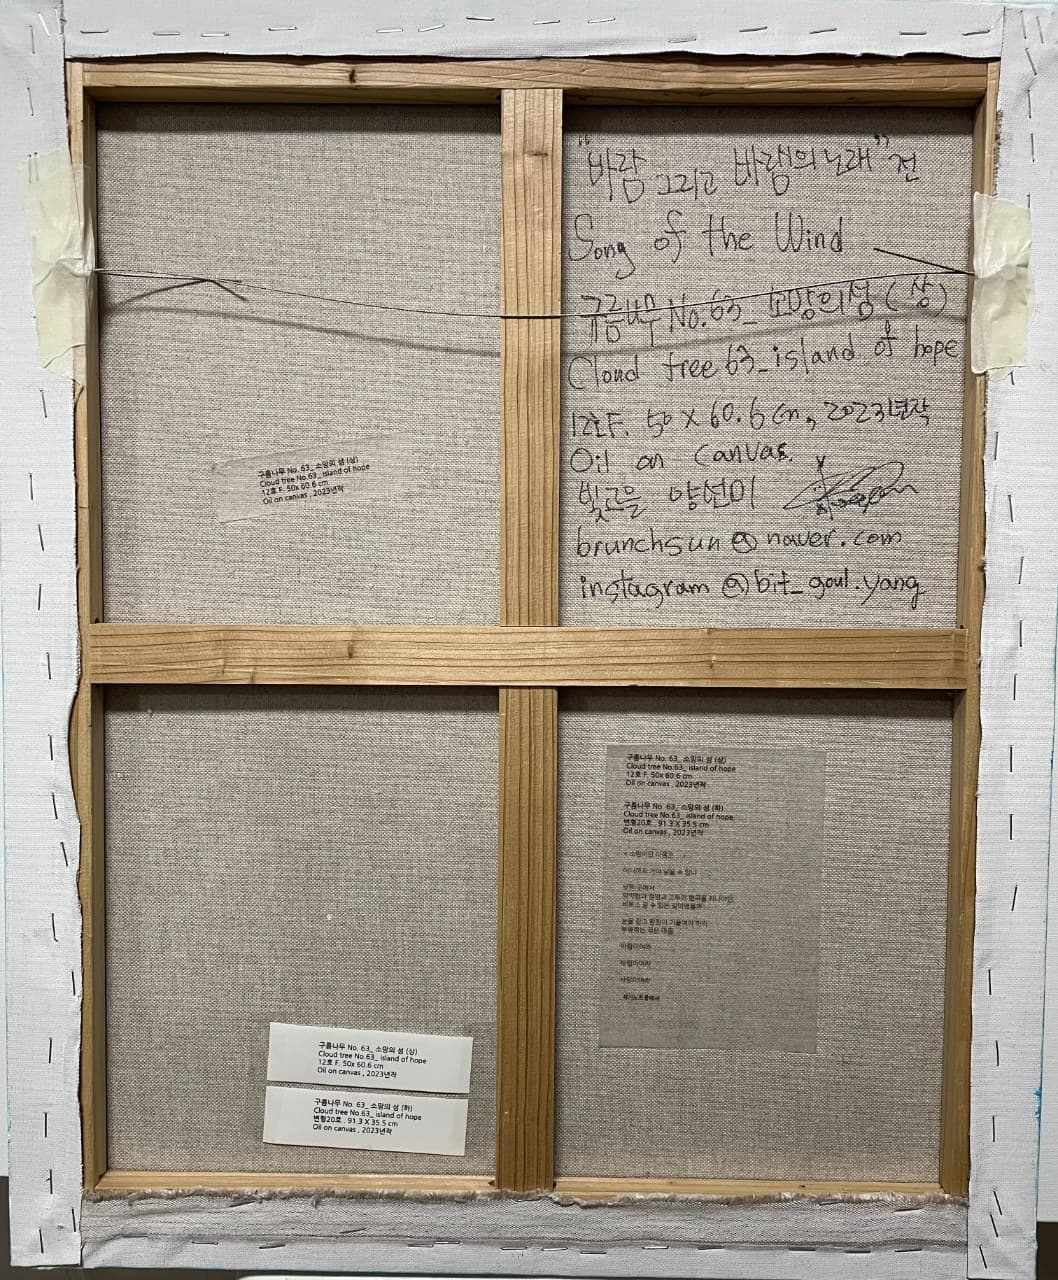 "바람 그리고 바램의 노래" 전
Song of the Wind
구름나무 No.63_ 소망의 섬 (상)
Cloud tree 63_island of hope
12호F. 50 x 60.6 cm, 2023년작
Oil on canvas.
빛고을 양선미
brunchsun@naver.com
instagram @bit_goul.yang
구름나무 No. 63_ 소망의 섬 (상)
Cloud tree No.63_ island of hope
12호 F. 50x 60.6 cm
Oil on canvas , 2023년작
구름나무 No. 63_ 소망의 섬 (상)
Cloud tree No.63_ island of hope
12호 F. 50x 60.6 cm
Oil on canvas , 2023년작
구름나무 No. 63_ 소망의 섬 (하)
Cloud tree No.63_ island of hope
변형20호 . 91.3 X 35.5 cm
Oil on canvas , 2023년작
어디까지 가야 닿을 수 있나
낮은 곳에서
눈을 감고 한참이 기울여야 하리
부유하는 작은 마음
바람이어라
바램이어라
사랑이어라
작가노트중에서
구름나무 No. 63_ 소망의 섬 (상)
Cloud tree No.63_ island of hope
12호 F. 50x 60.6 cm
Oil on canvas , 2023년작
구름나무 No. 63_ 소망의 섬 (하)
Cloud tree No.63_ island of hope
변형20호 . 91.3 X 35.5 cm
Oil on canvas , 2023년작